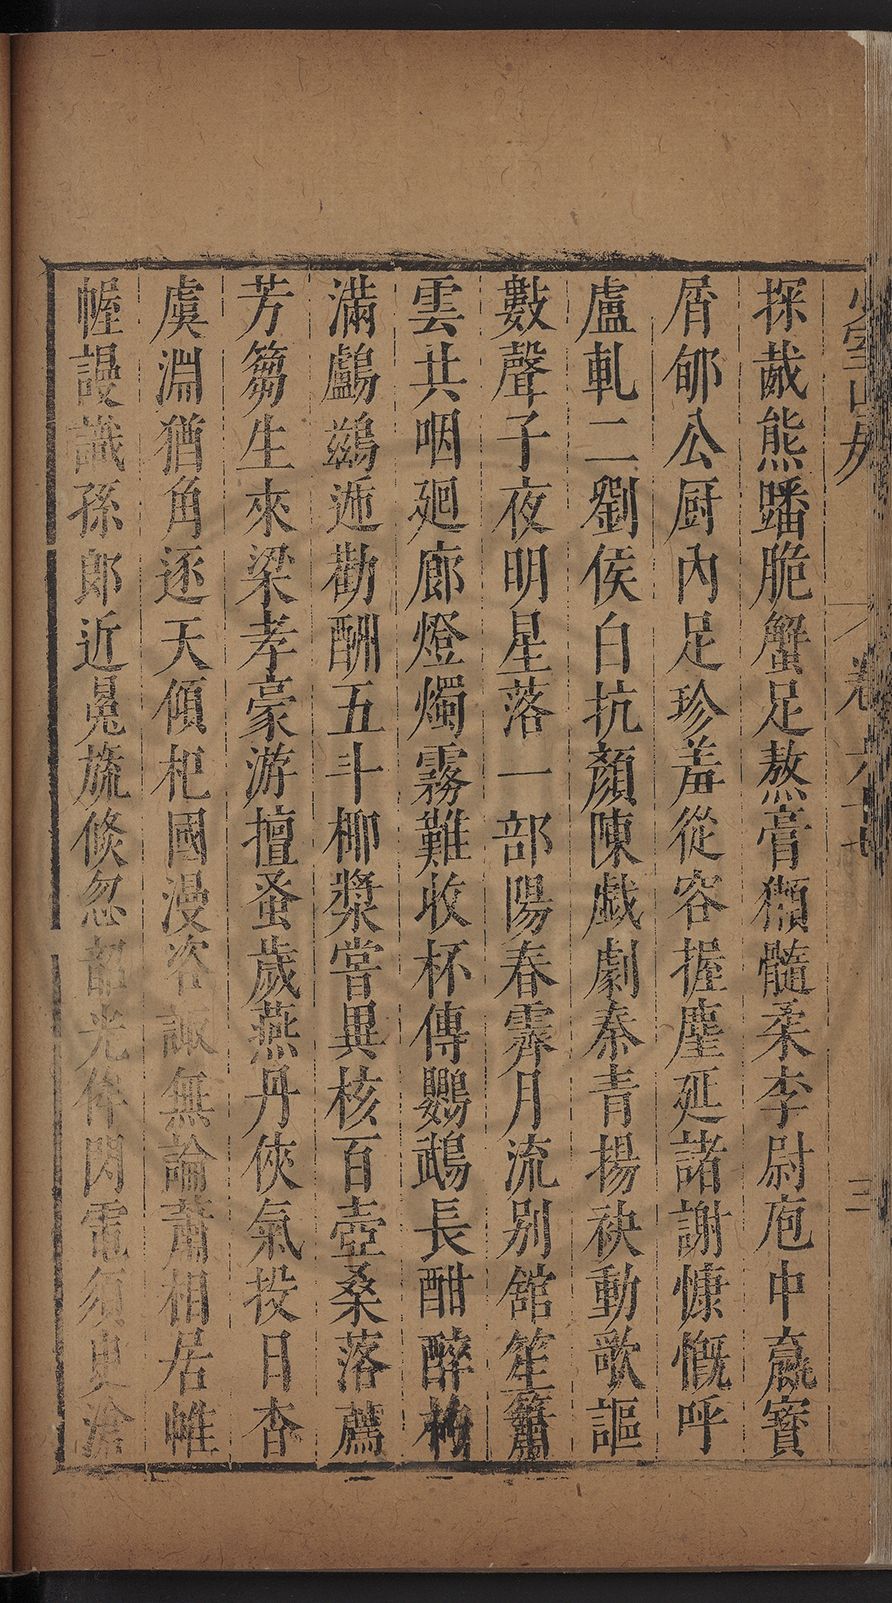 少室山房 卷六十七 三
探胾熊蹯脆蟹足熬膏獺髓柔李尉庖中羸寶
屑郇公厨內足珍羞從容握麈延諸謝慷慨呼
盧軋二劉侯白抗顏陳戯劇秦青揚袂動歌謳
數聲子夜明星落一部陽春霽月流別舘笙簫
雲共咽廻廊燈燭霧難收杯傳鸚鵡長酣醉栴
滿鸕鷀遞勸酬五斗椰漿嘗異核百壺桑落薦
芳蒭生來梁孝豪游擅蚤歲燕丹俠氣投日杳
虞淵猶角逐天傾杞國漫咨諏無論蕭相居帷
幄謾識孫郎近冕旒倏忽韶光侔閃電須臾滄